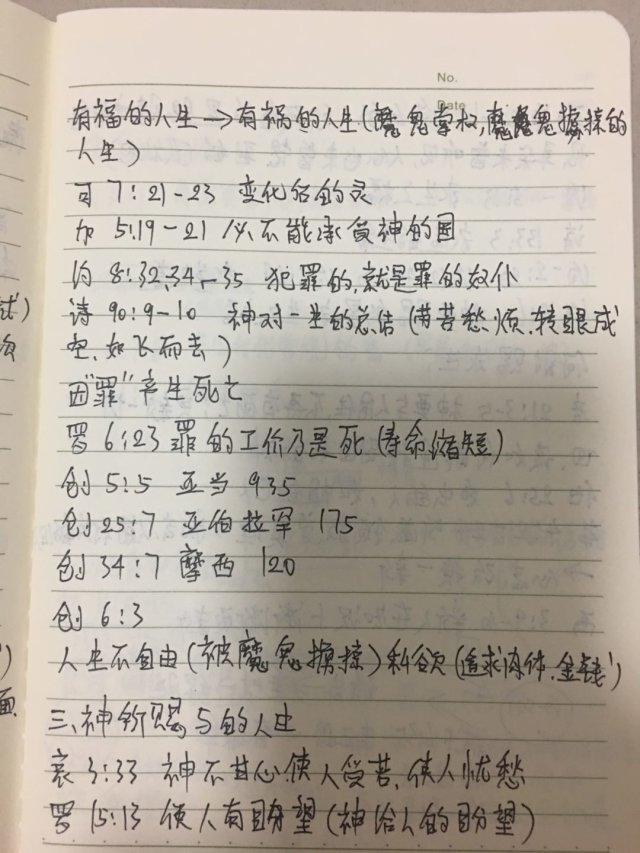 No.
Date
有福的人生→有祸的人生(魔鬼掌权,魔鬼掳掠的
人生)
可 7:21-23 变化的灵
加 5:19-21 必不能承受神的国
约 8:32,34-35 犯罪的,就是罪的奴仆
诗 90:9-10 神对一生的总结(劳苦愁烦,转眼成
空,如飞而去)
因"罪"产生死亡
罗 6:23 罪的工价乃是死(寿命缩短)
创 5:5 亚当 935
创 25:7 亚伯拉罕 175
创 34:7 摩西 120
创 6:3
人生不自由(被魔鬼掳掠)私欲(追求肉体.金钱)
三、神所赐与的人生
哀 3:33 神不甘心使人受苦,使人忧愁
罗 15:13 使人有盼望(神给人的盼望)